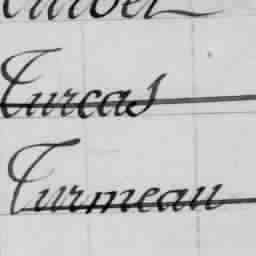 Turcas
Turmeau